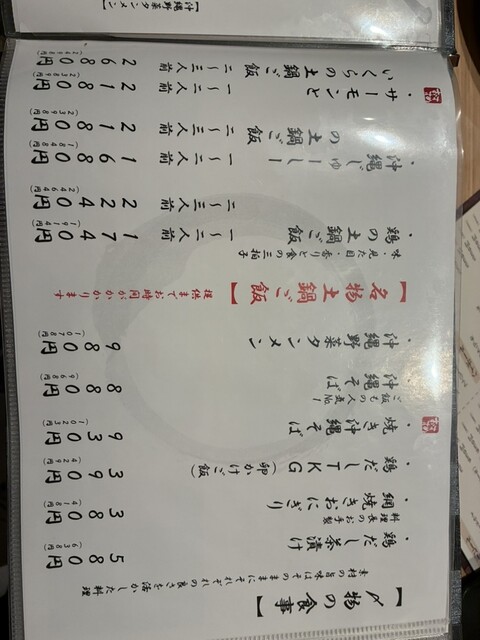 【〆物の食事】
素材の旨味はそのままにそれぞれの良さを活かした料理
・鶏だし茶漬け 580円
(638円)
料理長のお手製
・網焼きおにぎり 380円
(418円)
・鶏だしTKG(卵かけご飯) 390円
(429円)
・焼き沖縄そば 930円
(1023円)
ご飯もの人気No.1
・沖縄そば 880円
(968円)
・沖縄野菜タンメン 980円
(1078円)
【名物土鍋ご飯】提供までお時間がかかります
・味・見た目・香りと食の三拍子
・鶏の土鍋ご飯 一〜二人前 1740円
(1914円)
二〜三人前 2240円
(2464円)
・沖縄じゅーしーの土鍋ご飯 一〜二人前 1680円
(1848円)
二〜三人前 2180円
(2398円)
・サーモンといくらの土鍋ご飯 一〜二人前 2180円
(2398円)
二〜三人前 2680円
(2948円)
【沖縄野菜タンメン】